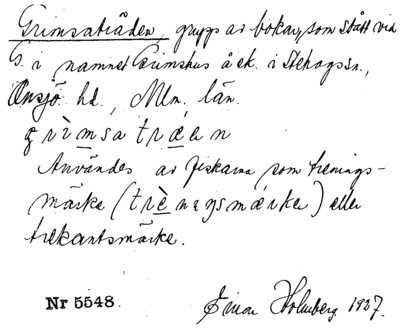 Grimsaträden, grupp av bokar, som stått vid
G. i namnet Grimshus å ek. i Stehagssn.,
Onsjö hd., Mlm. län.
grìmsa træen
Användes av fiskarna som trenings-
märke (trèningsmærke) eller
trekantsmärke.
Nr 5548. Einar Holmberg 1927.